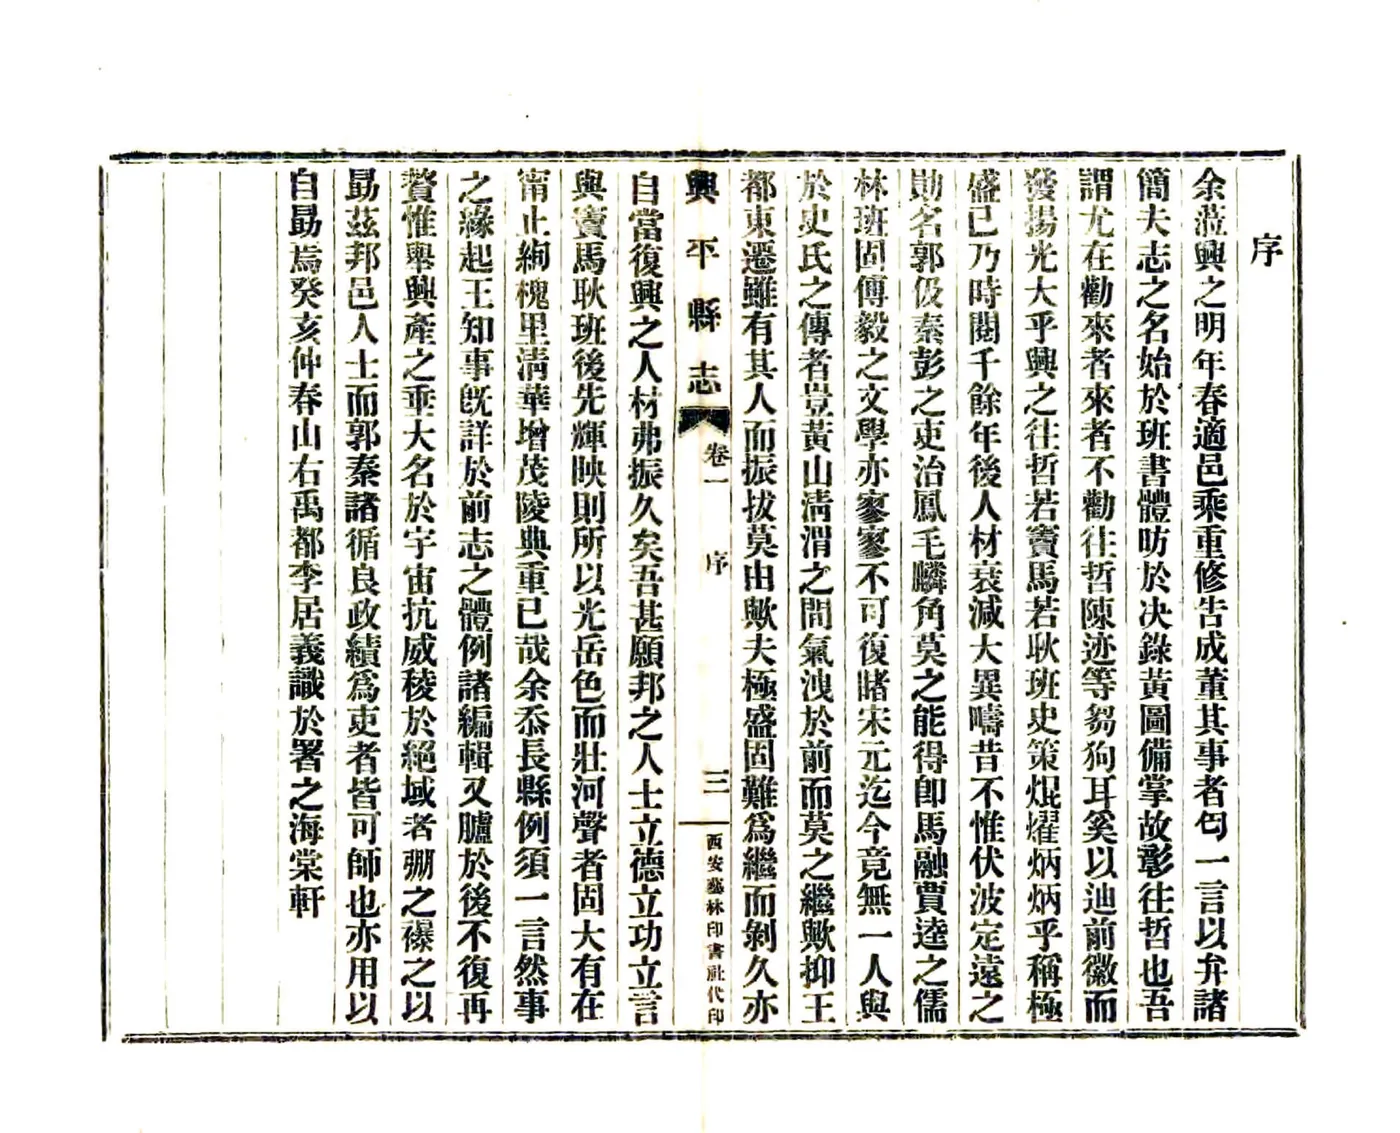 序
余蒞興之明年春適邑乘重修告成董其事者匃一言以弁諸
簡夫志之名始於班書體昉於决錄黃圖備掌故彰往哲也吾
謂尤在勸來者來者不勸往哲陳迹等芻狗耳奚以迪前徽而
發揚光大乎興之往哲若竇馬若耿班史策焜燿炳炳乎稱極
盛已乃時閱千餘年後人材衰減大異疇昔不惟伏波定遠之
勛名郭伋秦彭之吏治鳳毛麟角莫之能得卽馬融賈逵之儒
林班固傅毅之文學亦寥寥不可復睹宋元迄今竟無一人與
於史氏之傳者豈黃山淸渭之間氣洩於前而莫之繼歟抑王
都東遷雖有其人而振拔莫由歟夫極盛固難爲繼而剝久亦
興平縣志 卷一 序 三 西安藝林印書社代印
自當復興之人材弗振久矣吾甚願邦之人士立德立功立言
與竇馬耿班後先輝映則所以光岳色而壯河聲者固大有在
甯止絢槐里淸華增茂陵典重已哉余忝長縣例須一言然事
之緣起王知事旣詳於前志之體例諸編輯又臚於後不復再
贅惟舉興產之垂大名於宇宙抗威稜於絕域者弸之襮之以
勗茲邦邑人士而郭秦諸循良政績爲吏者皆可師也亦用以
自勗焉癸亥仲春山右禹都李居義識於署之海棠軒